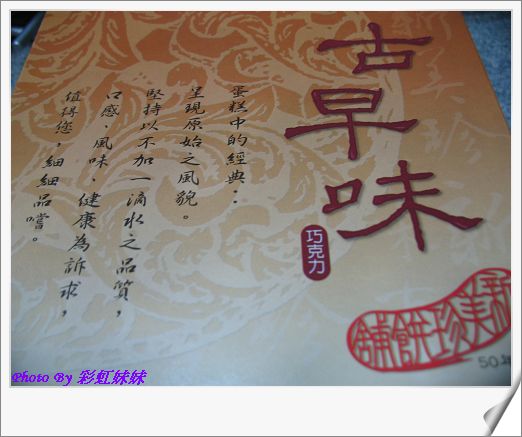 古早味
巧克力
蛋糕中的經典：
呈現原始之風貌。
堅持以不加一滴水之品質，
口感、風味、健康為訴求，
值得您，細細品嚐。
新美珍餅舖
50
Photo By 彩虹妹妹